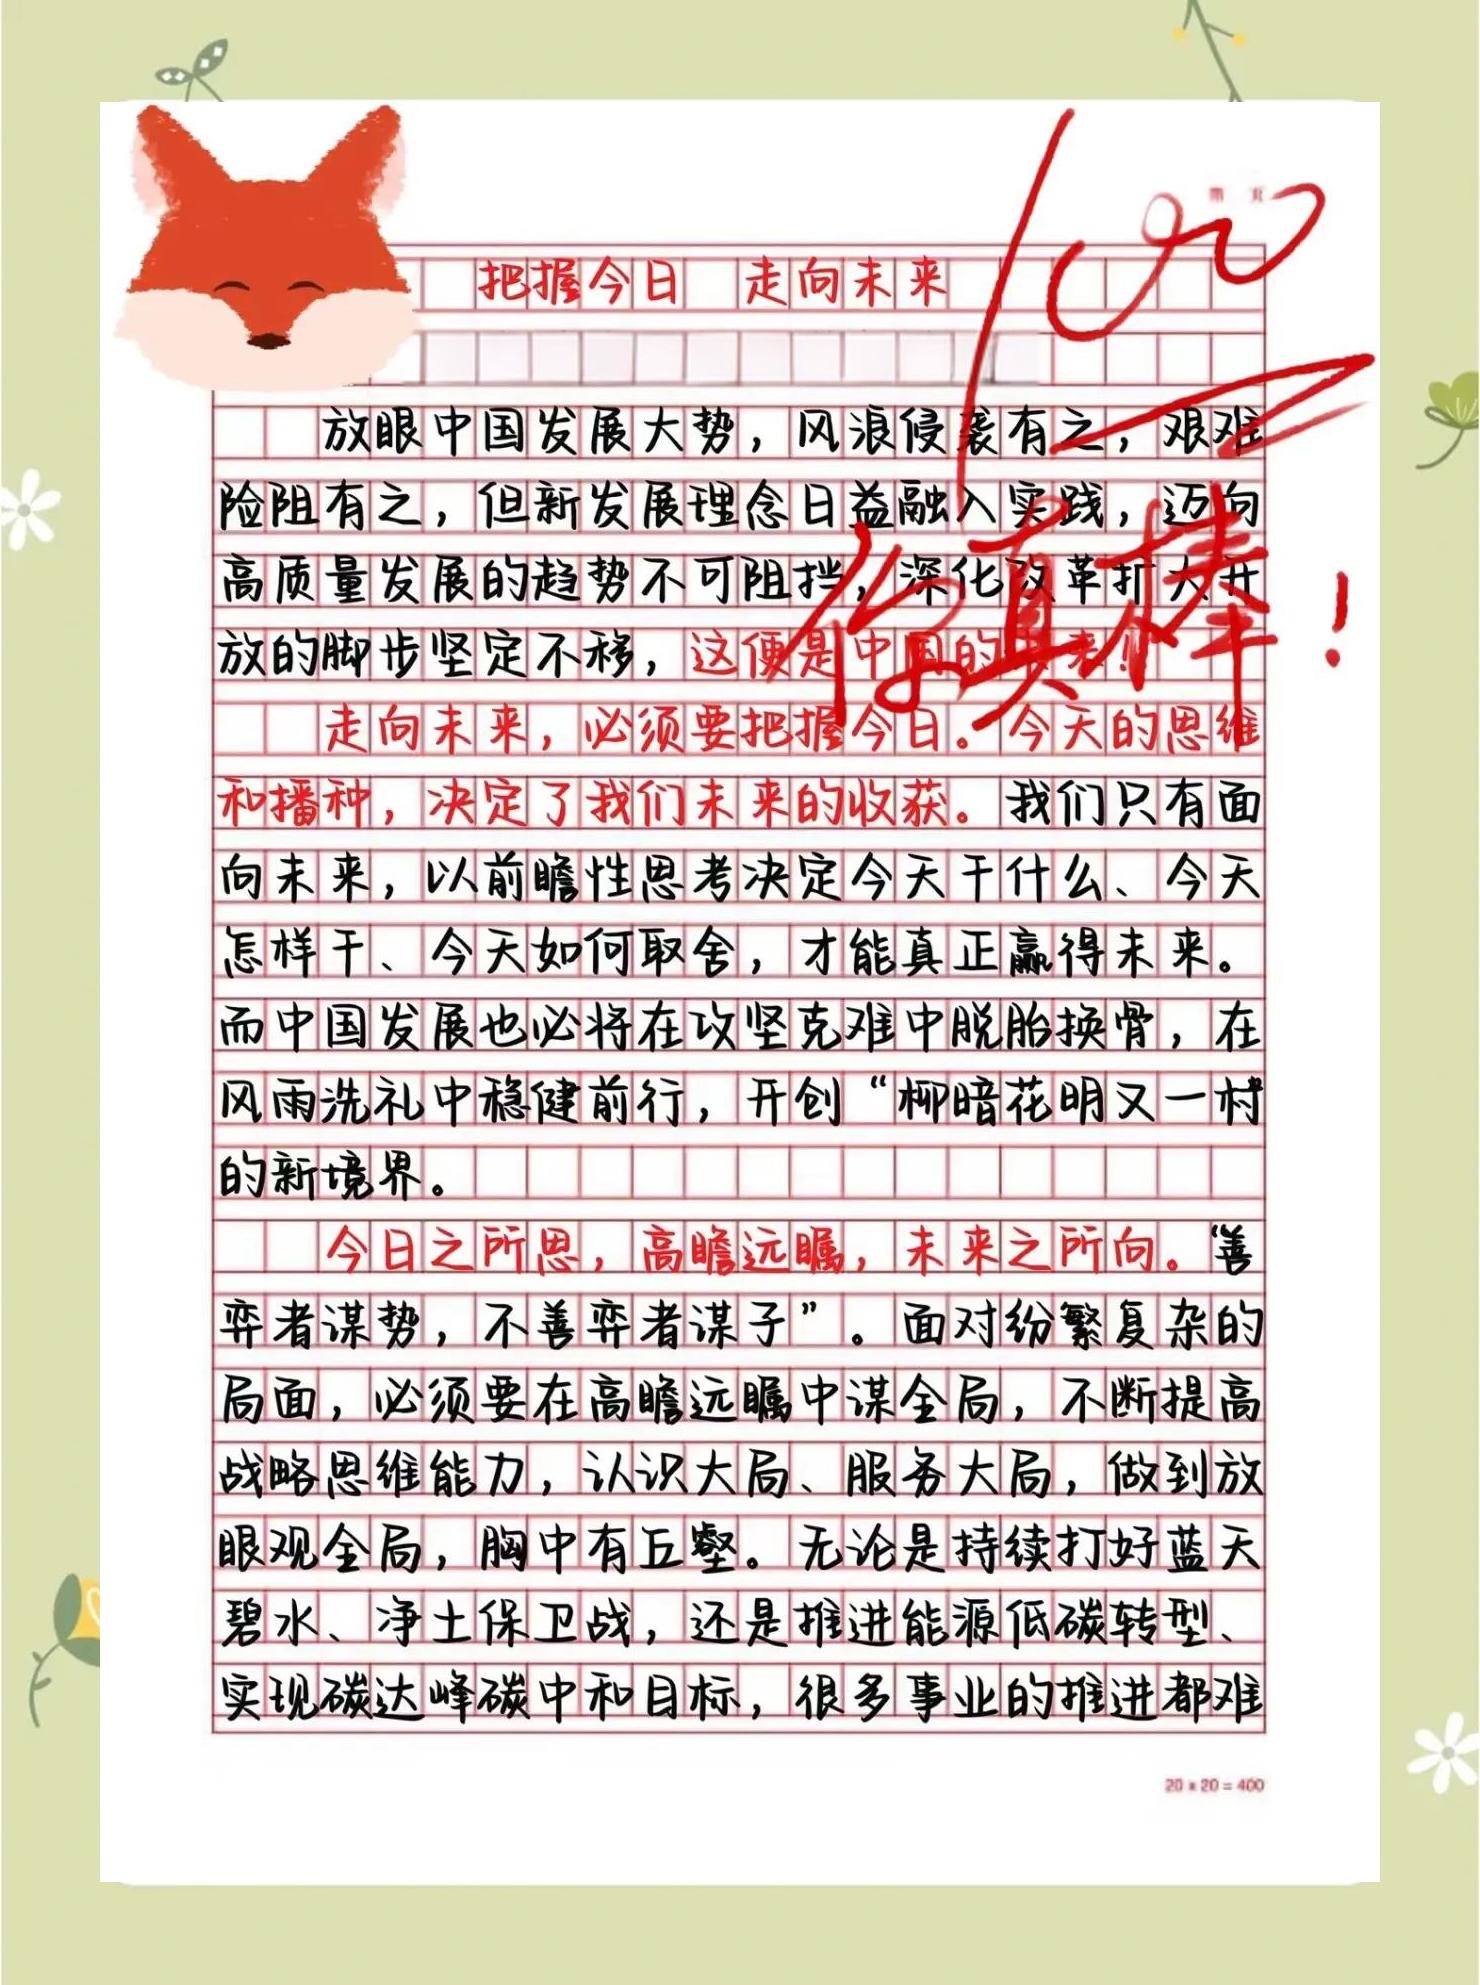 第 页
100
把握今日 走向未来
放眼中国发展大势，风浪侵袭有之，艰难
险阻有之，但新发展理念日益融入实践，迈向
高质量发展的趋势不可阻挡，深化改革扩大开
放的脚步坚定不移，这便是中国的未来！
你真棒！
走向未来，必须要把握今日。今天的思维
和播种，决定了我们未来的收获。我们只有面
向未来，以前瞻性思考决定今天干什么、今天
怎样干、今天如何取舍，才能真正赢得未来。
而中国发展也必将在攻坚克难中脱胎换骨，在
风雨洗礼中稳健前行，开创“柳暗花明又一村”
的新境界。
今日之所思，高瞻远瞩，未来之所向。“善
弈者谋势，不善弈者谋子”。面对纷繁复杂的
局面，必须要在高瞻远瞩中谋全局，不断提高
战略思维能力，认识大局、服务大局，做到放
眼观全局，胸中有丘壑。无论是持续打好蓝天
碧水、净土保卫战，还是推进能源低碳转型、
实现碳达峰碳中和目标，很多事业的推进都难
20×20=400